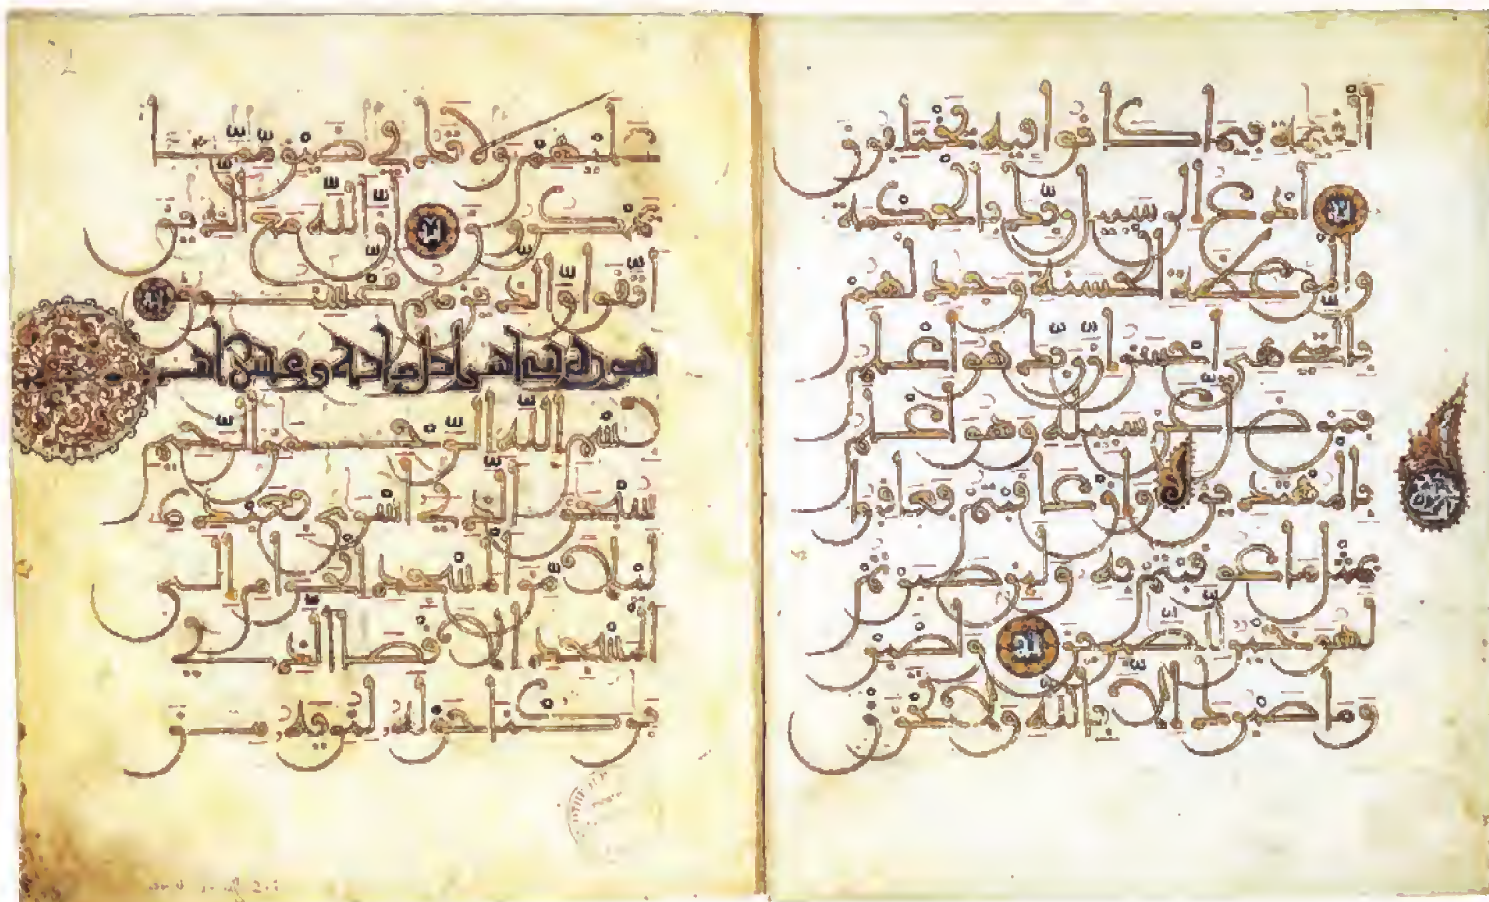 القيمة فيما كانوا فيه يختلفون
ادع الى سبيل ربك بالحكمة
والموعظة الحسنة وجدلهم
بالتي هي احسن ان ربك هو اعلم
بمن ضل عن سبيله وهو اعلم
بالمهتدين وان عاقبتم فعاقبوا
بمثل ما عوقبتم به ولئن صبرتم
لهو خير للصبرين واصبر
وما صبرك الا بالله ولا تحزن
عليهم ولا تك في ضيق مما
يمكرون ان الله مع الذين
اتقوا والذين هم محسنون
سورة بني اسرايل ماية وعشر
بسم الله الرحمن الرحيم
سبحن الذي اسرى بعبده
ليلا من المسجد الحرام الى
المسجد الاقصا الذي
بركنا حوله لنريه من